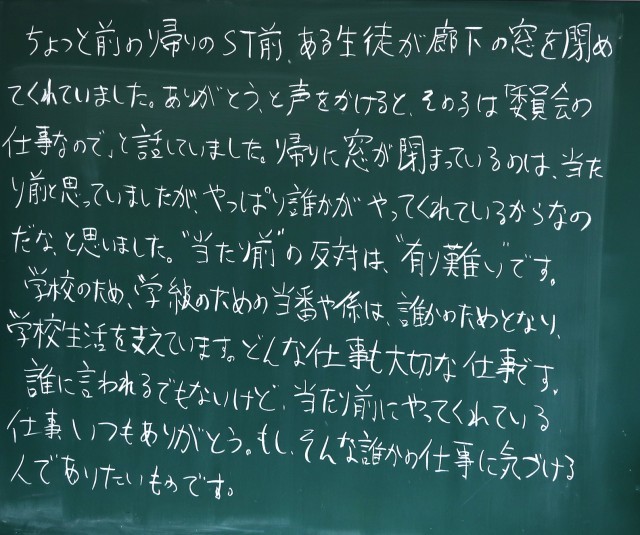 ちょっと前の帰りのST前、ある生徒が廊下の窓を閉め
てくれていました。ありがとう、と声をかけると、その子は「委員会の
仕事なので」と話していました。帰りに窓が閉まっているのは、当た
り前と思っていましたが、やっぱり誰かがやってくれているからなの
だな、と思いました。"当たり前"の反対は、"有り難い"です。
学校のため、学級のための当番や係は、誰かのためとなり、
学校生活を支えています。どんな仕事も大切な仕事です。
誰に言われるでもないけど、当たり前にやってくれている
仕事、いつもありがとう。もし、そんな誰かの仕事に気づける
人でありたいものです。